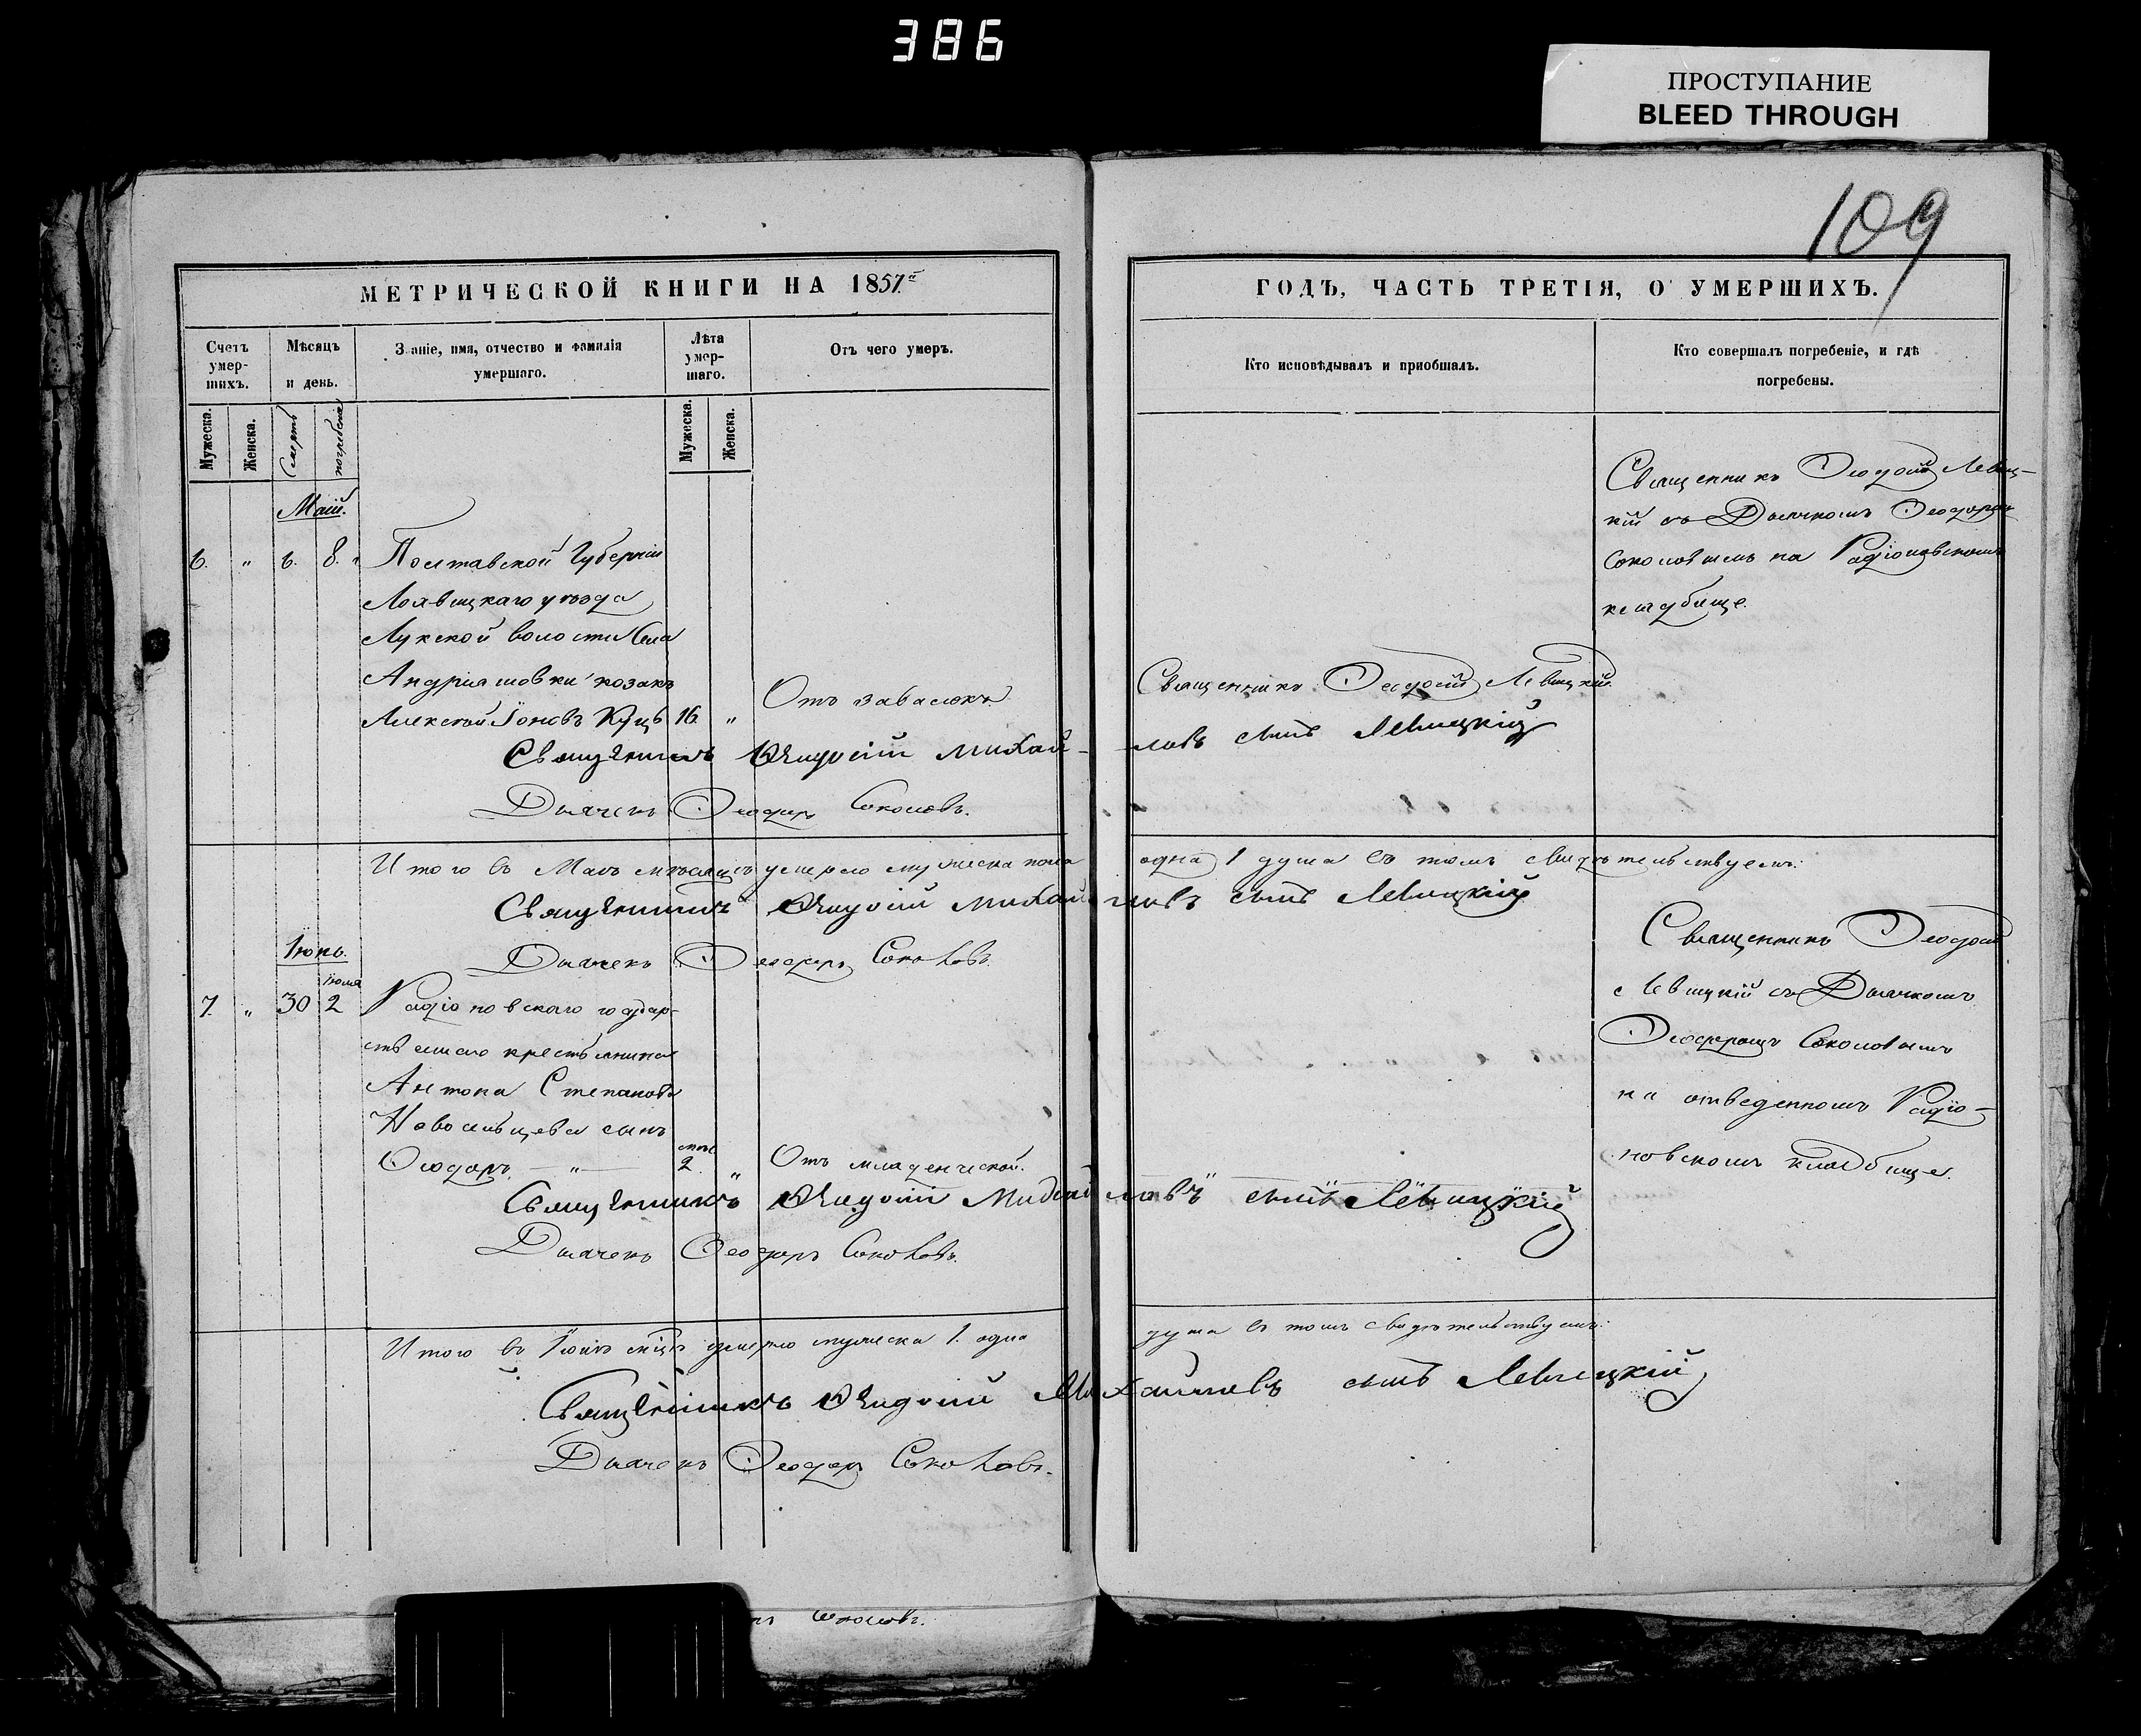 386
ПРОСТУПАНИЕ
BLEED THROUGH
109
МЕТРИЧЕСКОЙ КНИГИ НА 1857.й
ГОДЪ, ЧАСТЬ ТРЕТІЯ, О УМЕРШИХЪ.
Счетъ умер-шихъ.
Мѣсяцъ и день.
Званіе, имя, отчество и фамилія умершаго.
Лѣта умер-шаго.
Отъ чего умеръ.
Кто исповѣдывалъ и пріобщалъ.
Кто совершалъ погребеніе, и гдѣ погребены.
Мужеска.
Женска.
Смерть
погребенія
Мужеска.
Женска.
Май.
6. " 6. 8. " Полтавской Губерніи
Лохвицкаго уѣзда
Лукской волости Села
Андріяшовки козакъ
Алексѣй Іоновъ Куцъ 16. " Отъ завалокъ
Священникъ Ѳеодосій Левицкій.
Священникъ Ѳеодосій Левиц-
кій съ Дьячкомъ Ѳеодоромъ
Соколовымъ на Радіоновскомъ
кладбище.
Священникъ Ѳеодосій Михай-ловъ сынъ Левицкій
Дьячекъ Ѳеодоръ Соколовъ.
Итого въ Маѣ мѣсяцѣ умерло мужеска пола одна 1 душа въ томъ свидѣтельствуемъ:
Священникъ Ѳеодосій Михайловъ сынъ Левицкій
Дьячекъ Ѳеодоръ Соколовъ.
Іюнь.
Іюля
7. " 30 2 Радіоновскаго государ-
ственнаго крестьянина
Антона Степанова
Новосильцева сынъ
Ѳеодоръ. — " — 2. " Отъ младенческой.
Священникъ Ѳеодосій
Левицкій съ Дьячкомъ
Ѳеодоромъ Соколовымъ
на отведенномъ Радіо-
новскомъ кладбище.
Священникъ Ѳеодосій Михайловъ сынъ Левицкій
Дьячекъ Ѳеодоръ Соколовъ.
Итого въ Іюнѣ мцѣ умерло мужеска 1. одна душа въ томъ свидѣтельствуемъ:
Священникъ Ѳеодосій Михайловъ сынъ Левицкій
Дьячекъ Ѳеодоръ Соколовъ.
Соколовъ.